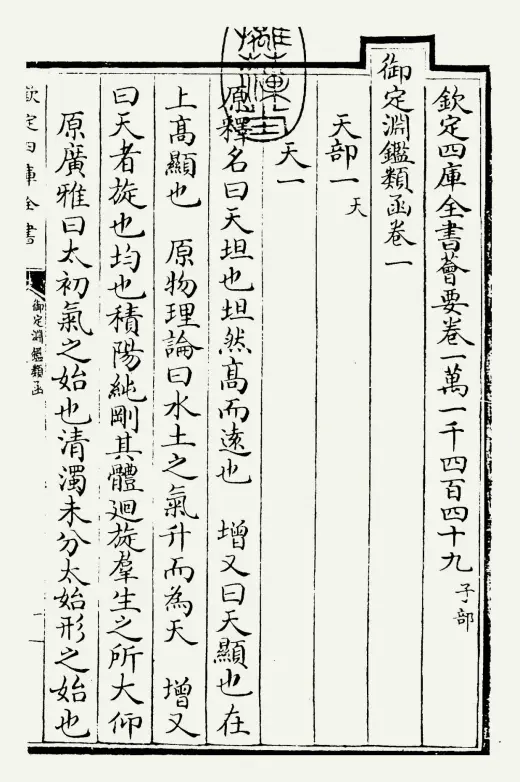 欽定四庫全書薈要卷一萬一千四百四十九 子部
御定淵鑑類函卷一
天部一 天
天一
原釋名曰天坦也坦然髙而逺也 增又曰天顯也在
上髙顯也 原物理論曰水土之氣升而為天 增又
曰天者旋也均也積陽純剛其體迴旋羣生之所大仰
原廣雅曰太初氣之始也清濁未分太始形之始也
欽定四庫全書
御定淵鑑類函